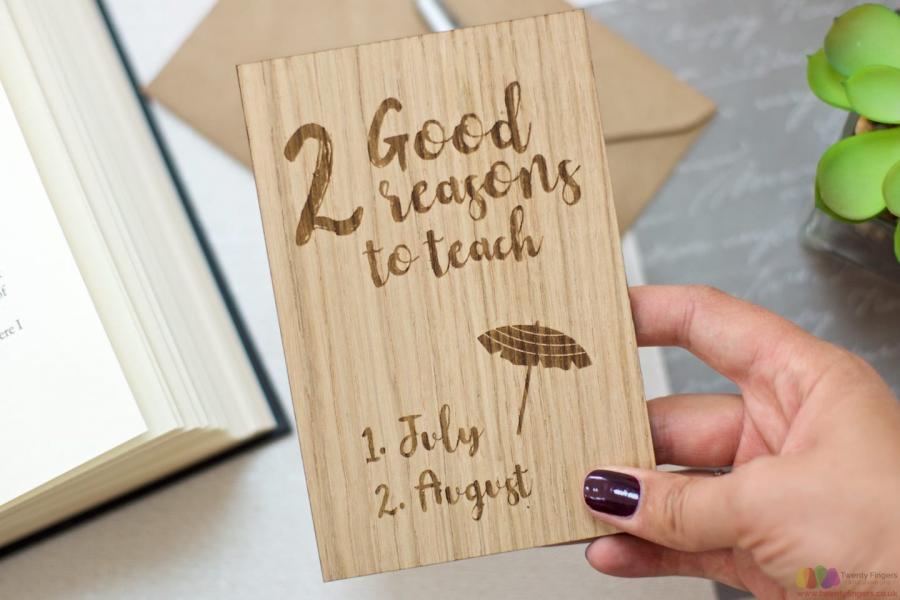 2 Good
reasons
to teach
1. July
2. August
of
ere I
Twenty Fingers
www.twentyfingers.co.uk